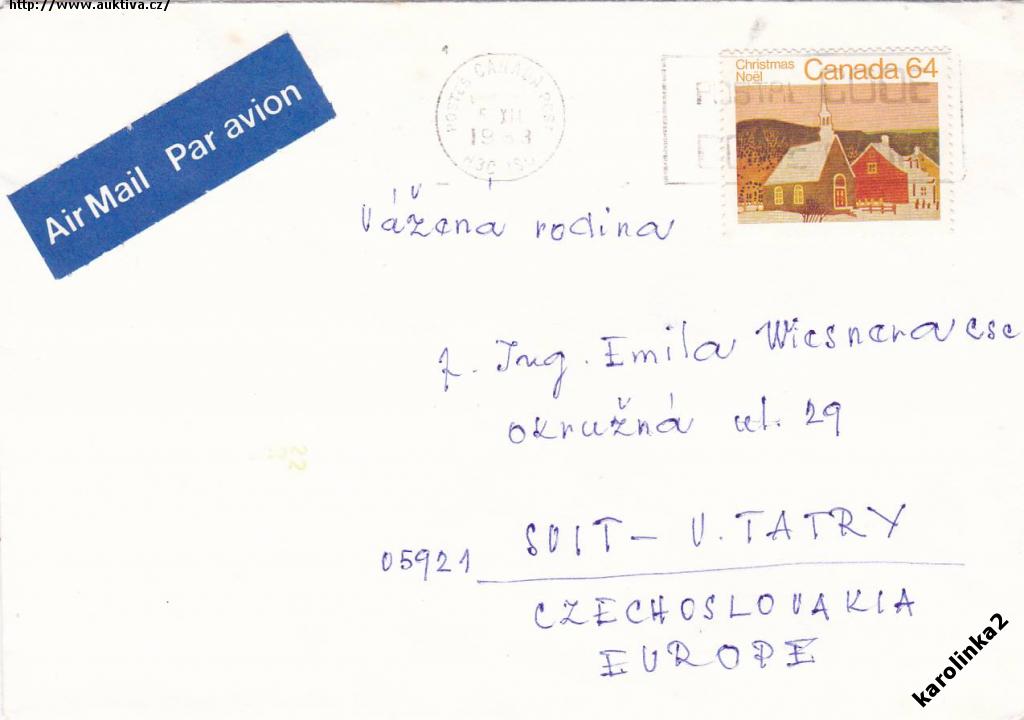 http://www.auktiva.cz/
Air Mail Par avion
POSTES CANADA POST
5 XII
1983
H3C 1S0
POSTAL CODE
Christmas
Noël
Canada 64
Vážena rodina
Ing. Emila Wiesnera csc
Okružná ul. 29
05921 SVIT - V. TATRY
CZECHOSLOVAKIA
EUROPE
karolinka2